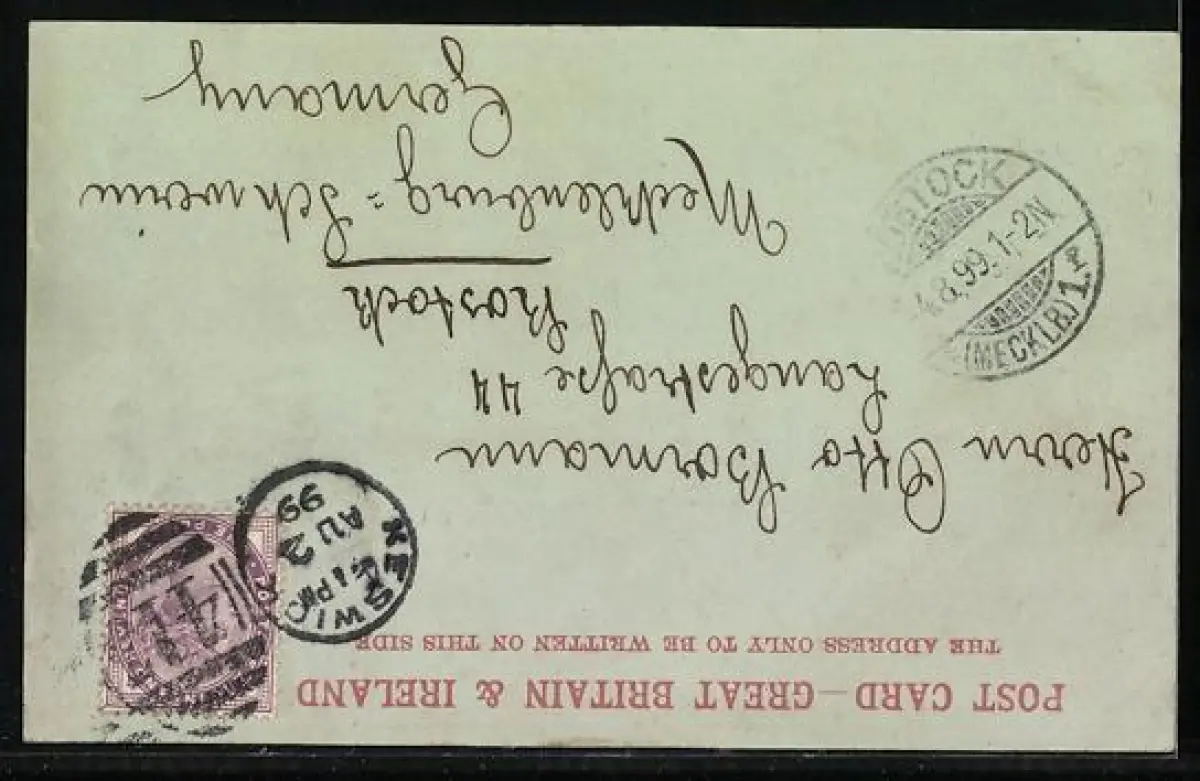 POST CARD—GREAT BRITAIN & IRELAND
THE ADDRESS ONLY TO BE WRITTEN ON THIS SIDE
KESWICK
PM
AU 2
99
Herrn Otto Bormann
Langestraße 44
Rostock
Mecklenburg=Schwerin
Germany
STOCK
8.99.1-2N
(MECKLB)1.